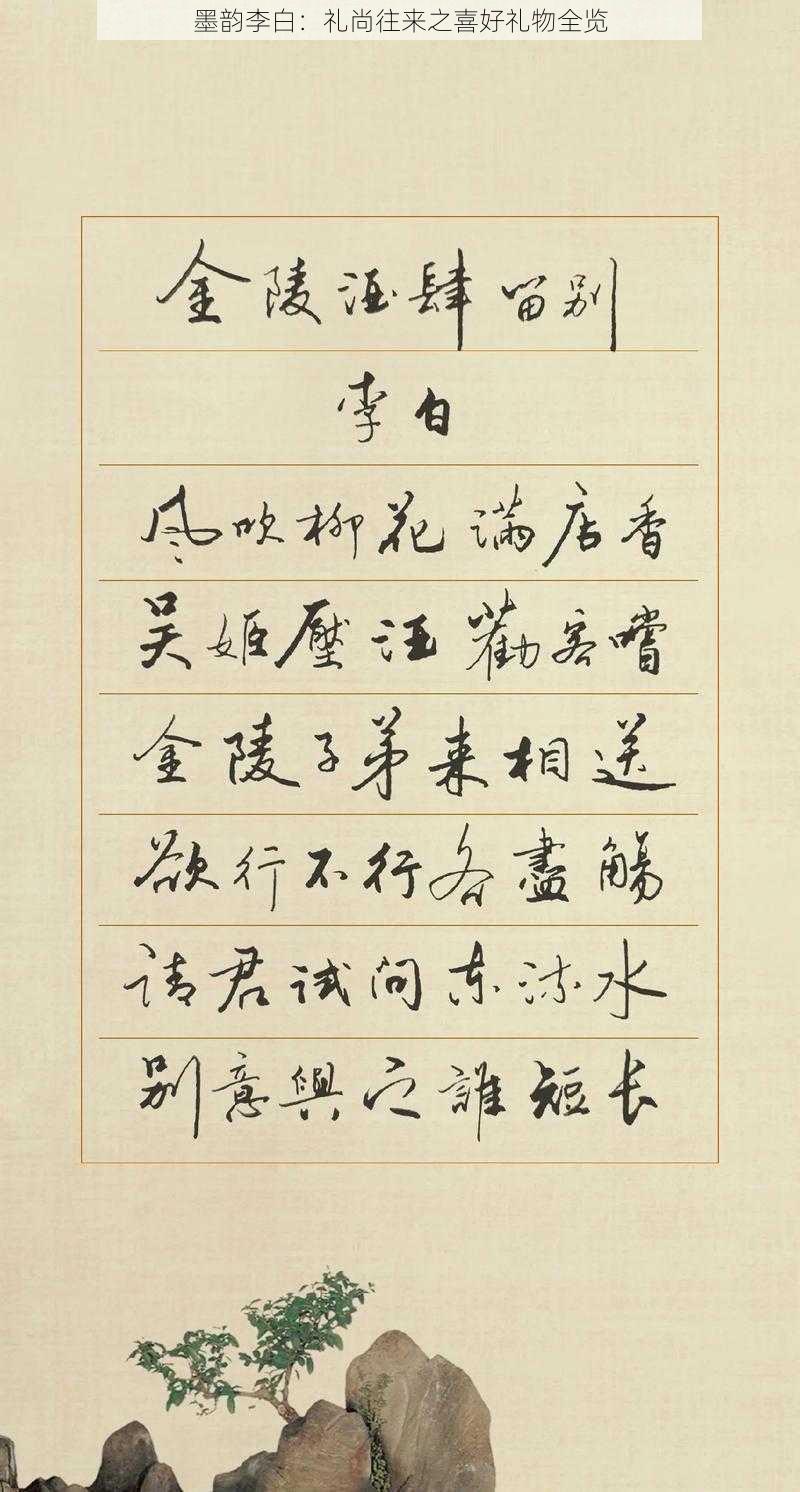 墨韵李白：礼尚往来之喜好礼物全览
金陵酒肆留别
李白
风吹柳花满店香
吴姬壓酒勸客嚐
金陵子弟来相送
欲行不行各盡觞
请君试问东流水
别意與之誰短长